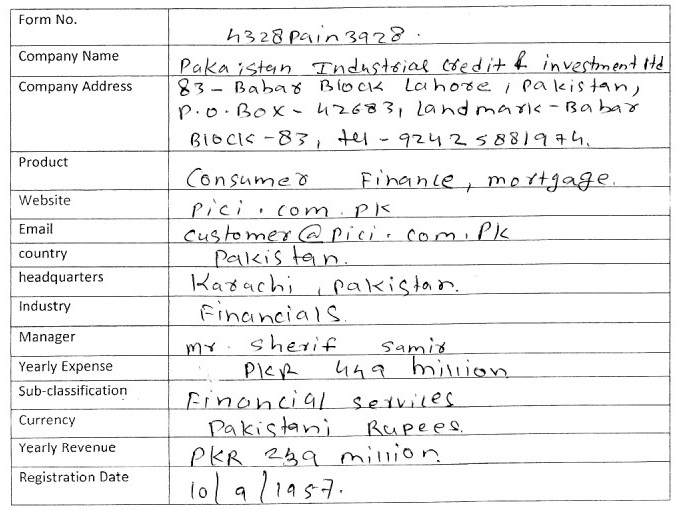 Form No. 4328Pain3928.
Company Name Pakaistan Industrial Credit & investment ltd
Company Address 83 - Babar Block Lahore, Pakistan,
P.O. Box - 42683, Landmark - Babar
Block - 83, tel - 92425881974.
Product Consumer Finance, mortgage.
Website Pici.com.pk
Email customer@pici.com.pk
country Pakistan.
headquarters Karachi, pakistan.
Industry Financials.
Manager mr. sherif samir
Yearly Expense PKR 449 million
Sub-classification Financial services
Currency Pakistani Rupees.
Yearly Revenue PKR 239 million.
Registration Date 10/9/1957.